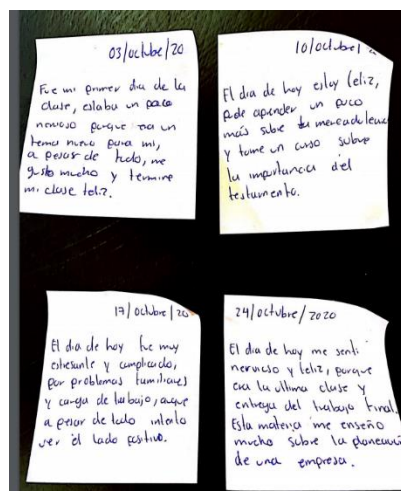 03/octubre/20
Fue mi primer dia de la
clase, estaba un poco
nervioso porque era un
tema nuevo para mi,
a pesar de todo, me
gusto mucho y termine
mi clase feliz.
10/octubre/
El dia de hoy estoy feliz,
pude aprender un poco
más sobre la mercadotecnia
y tome un curso sobre
la importancia del
testamento.
17/octubre/20
El dia de hoy fue muy
estresante y complicado,
por problemas familiares
y carga de trabajo, aunque
a pesar de todo intento
ver el lado positivo.
24/octubre/2020
El dia de hoy me senti
nervioso y feliz, porque
era la ultima clase y
entrega del trabajo final.
Esta materia me enseño
mucho sobre la planeación
de una empresa.